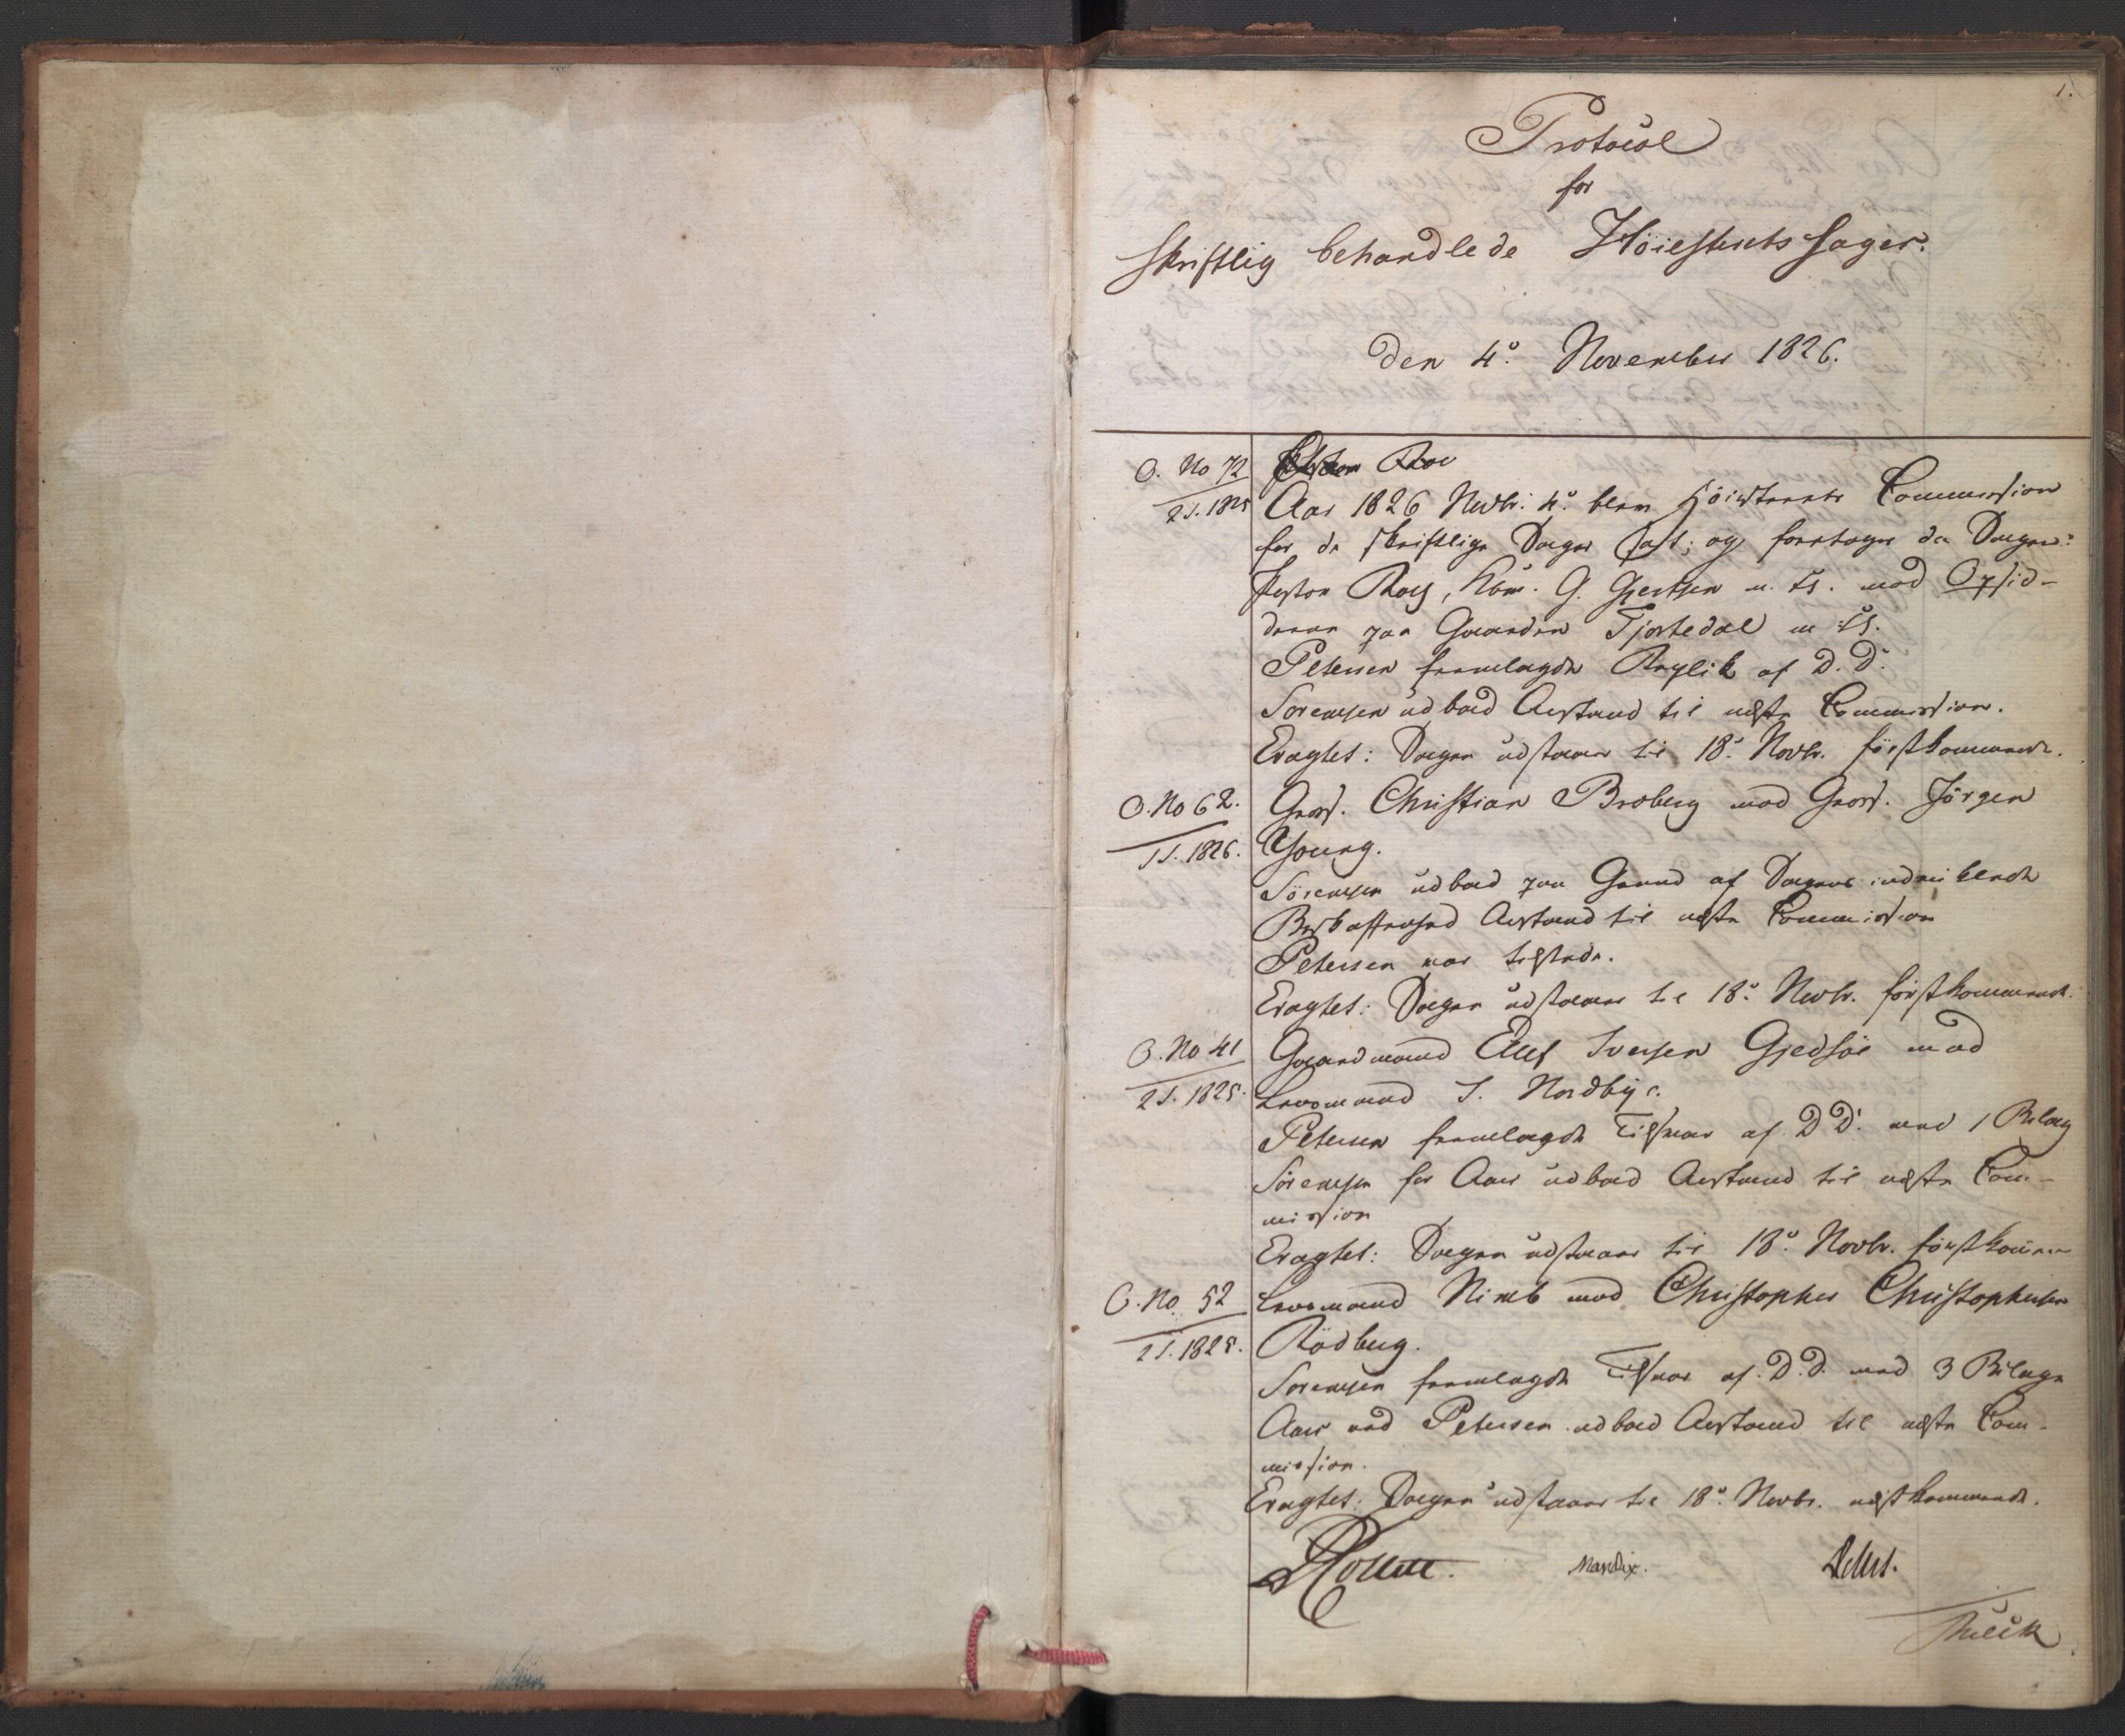 1.
Protocol
for
skriftlig behandlede Höiesterets Sager.
den 4de November 1826.
O. No 72
2 S. 1825
Aar 1826 Novbr. 4de blev Höiesterets Commission
for de skriftlige Sager sat; og foretagen da Sagen:
Pastor Ros, Kbm. G. Gjertsen m. fl. mod Opsid-
deren paa Gaarden Tjostedal m. fl.
Petersen fremlagde Replik af D. D.
Sörensen udbad Anstand til næste Commission.
Eragtet: Sagen udstaaer til 18de Novbr. förstkommende.
O. No 62.
1 S. 1826.
Gross. Christian Broberg mod Gross. Jörgen
Young.
Sörensen udbad paa Grund af Sagens indviklede
Beskaffenhed Anstand til næste Commission
Petersen var tilstede.
Eragtet: Sagen udstaaer til 18de Novbr. förstkommende.
O. No 41
2 S. 1825.
Gaardmand Elef Iversen Gjedsöe mod
Lensmand S. Nordbye.
Petersen fremlagde Tilsvar af D. D. med 1 Bilag
Sörensen for Aars udbad Anstand til næste Com-
mission
Eragtet: Sagen udstaaer til 18de Novbr. förstkommende
O. No. 52
2 S. 1825.
Lensmand Nimb mod Christopher Christophersen
Rödberg.
Sörensen fremlagde Tilsvar af D. D. med 3 Bilage
Aars ved Petersen udbad Anstand til næste Com-
mission.
Eragtet: Sagen udstaaer til 18de Novbr. næstkommende.
Mandix.